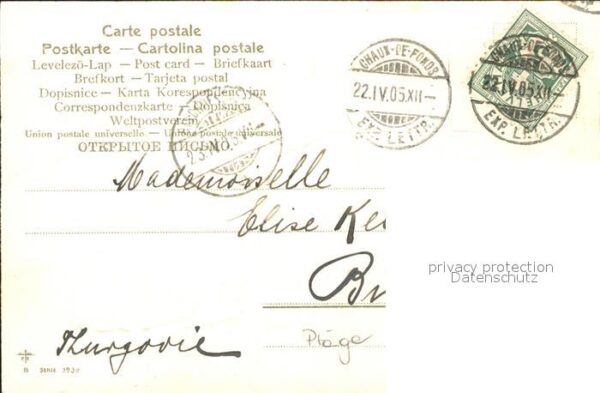 Carte postale
Postkarte — Cartolina postale
Levelező-Lap — Post card — Briefkaart
Brefkort — Tarjeta postal
Dopisnice — Karta Korespondencyjna
Correspondenzkarte — Dopisnica
Weltpostverein
Union postale universelle — Unione postale universale
ОТКРЫТОЕ ПИСЬМО.
CHAUX-DE-FONDS
22.IV.05.XII—
EXP. LETTR.
CHAUX-DE-FONDS
22.IV.05.XII—
EXP. LETTR.
Mademoiselle
Elise
privacy protection
Datenschutz
Thurgovie
Plage
B Serie